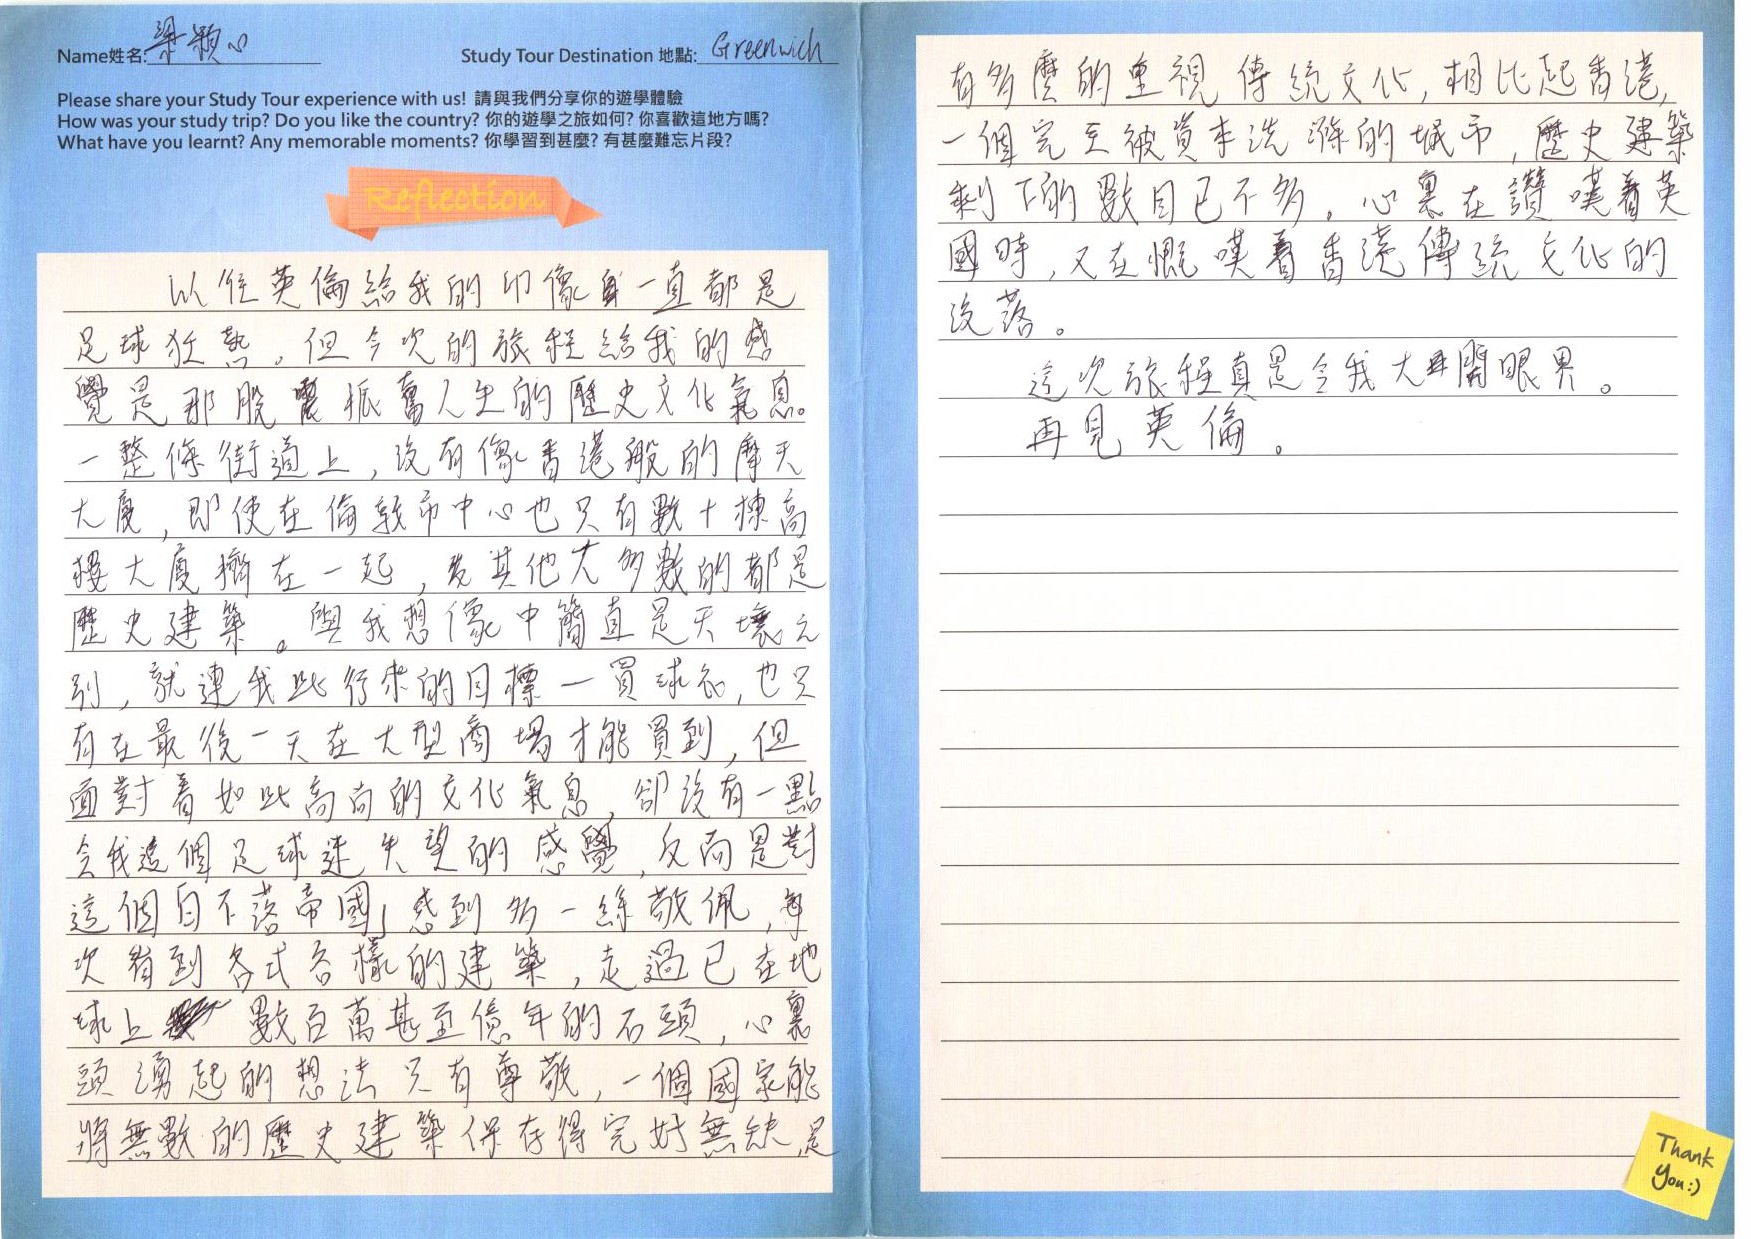 Name姓名: 梁穎心 Study Tour Destination 地點: Greenwich
Please share your Study Tour experience with us! 請與我們分享你的遊學體驗
How was your study trip? Do you like the country? 你的遊學之旅如何? 你喜歡這地方嗎?
What have you learnt? Any memorable moments? 你學習到甚麼? 有甚麼難忘片段?
Reflection
以往英倫給我的印像一直都是
足球狂熱。但今次的旅程給我的感
覺是那股振奮人生的歷史文化氣息。
一整條街道上,沒有像香港般的摩天
大廈,即使在倫敦市中心也只有數十棟高
樓大廈擠在一起,其他大多數的都是
歷史建築。與我想像中簡直是天壤之
別,就連我此行來的目標—買球衣,也只
有在最後一天在大型商場才能買到,但
面對着如此高尚的文化氣息,卻沒有一點
令我這個足球迷失望的感覺,反而是對
這個日不落帝國」感到多一絲敬佩,每
次看到各式各樣的建築,走過已在地
球上數百萬甚至億年的石頭,心裏
頭湧起的想法只有尊敬,一個國家能
將無數的歷史建築保存得完好無缺,是
有多麼的重視傳統文化,相比起香港,
一個完全被資本洗滌的城市,歷史建築
剩下的數目已不多。心裏在讚嘆着英
國時,又在慨嘆着香港傳統文化的
沒落。
這次旅程真是令我大開眼界。
再見,英倫。
Thank
you:)